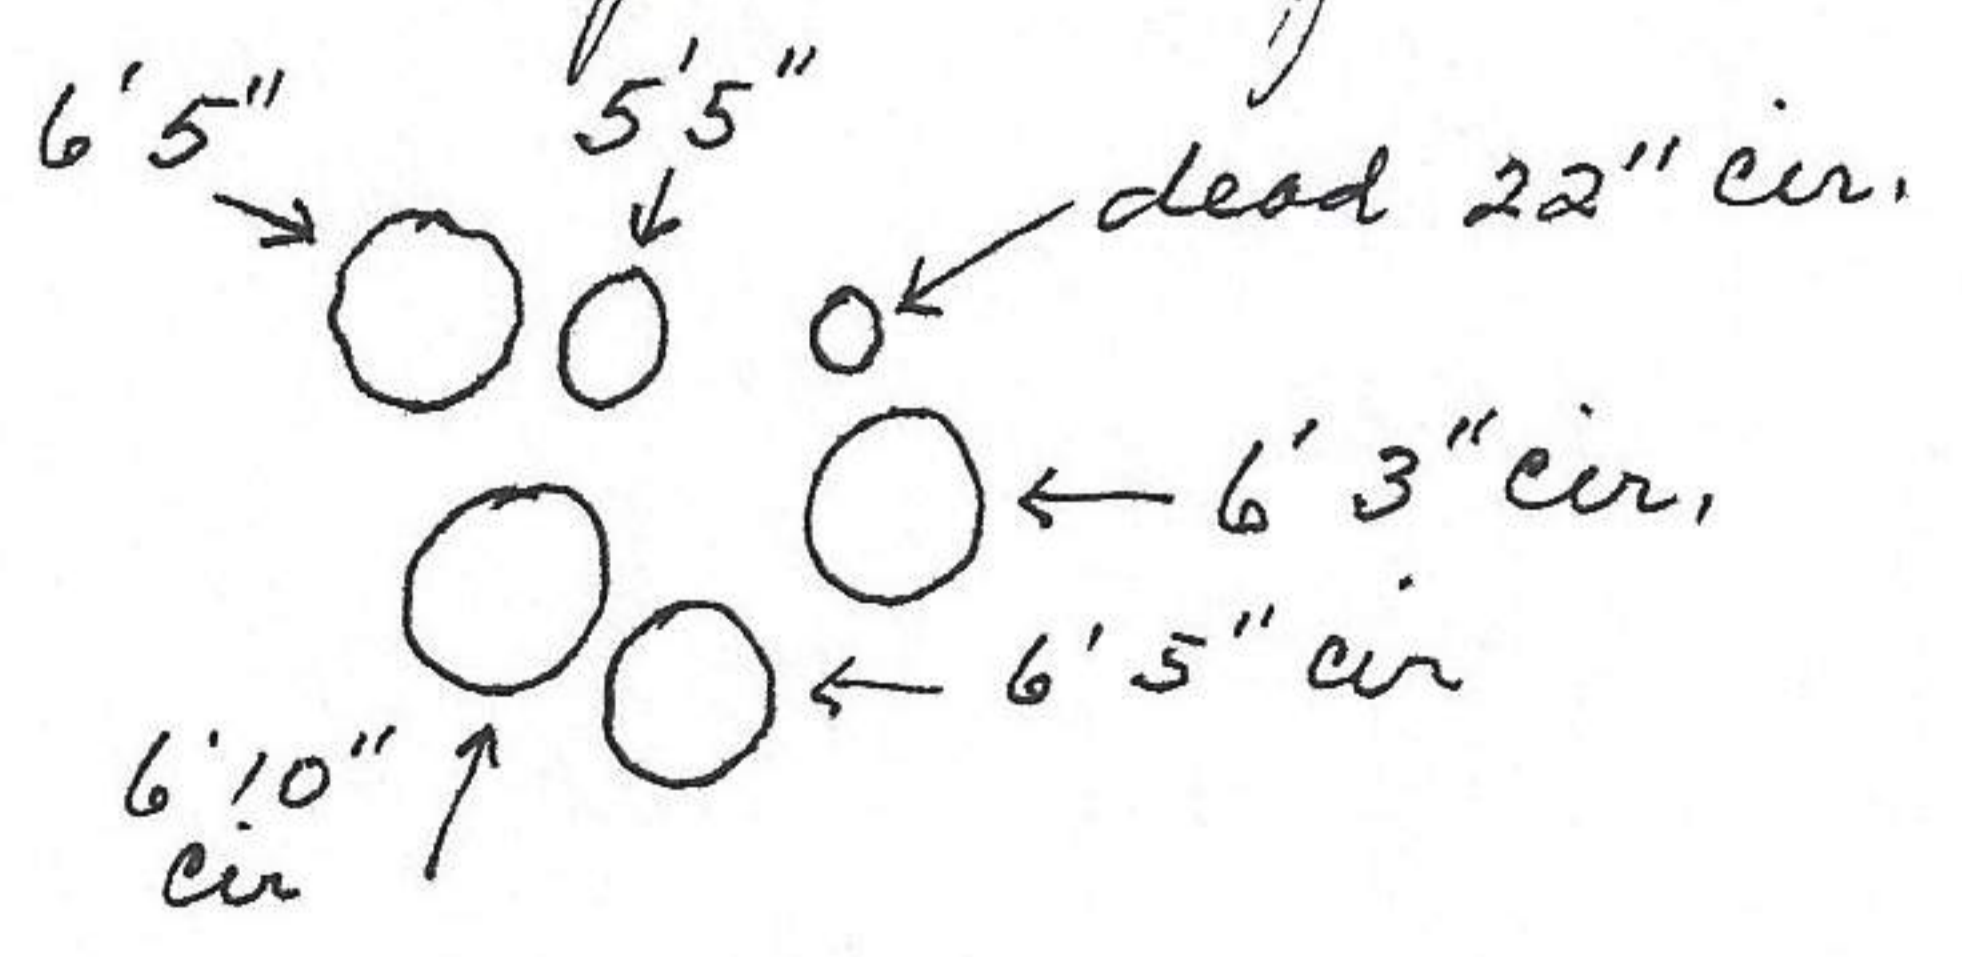 6' 5"
5'5"
dead 22" cir.
6' 3" cir.
6' 5" cir
6'10"
cir